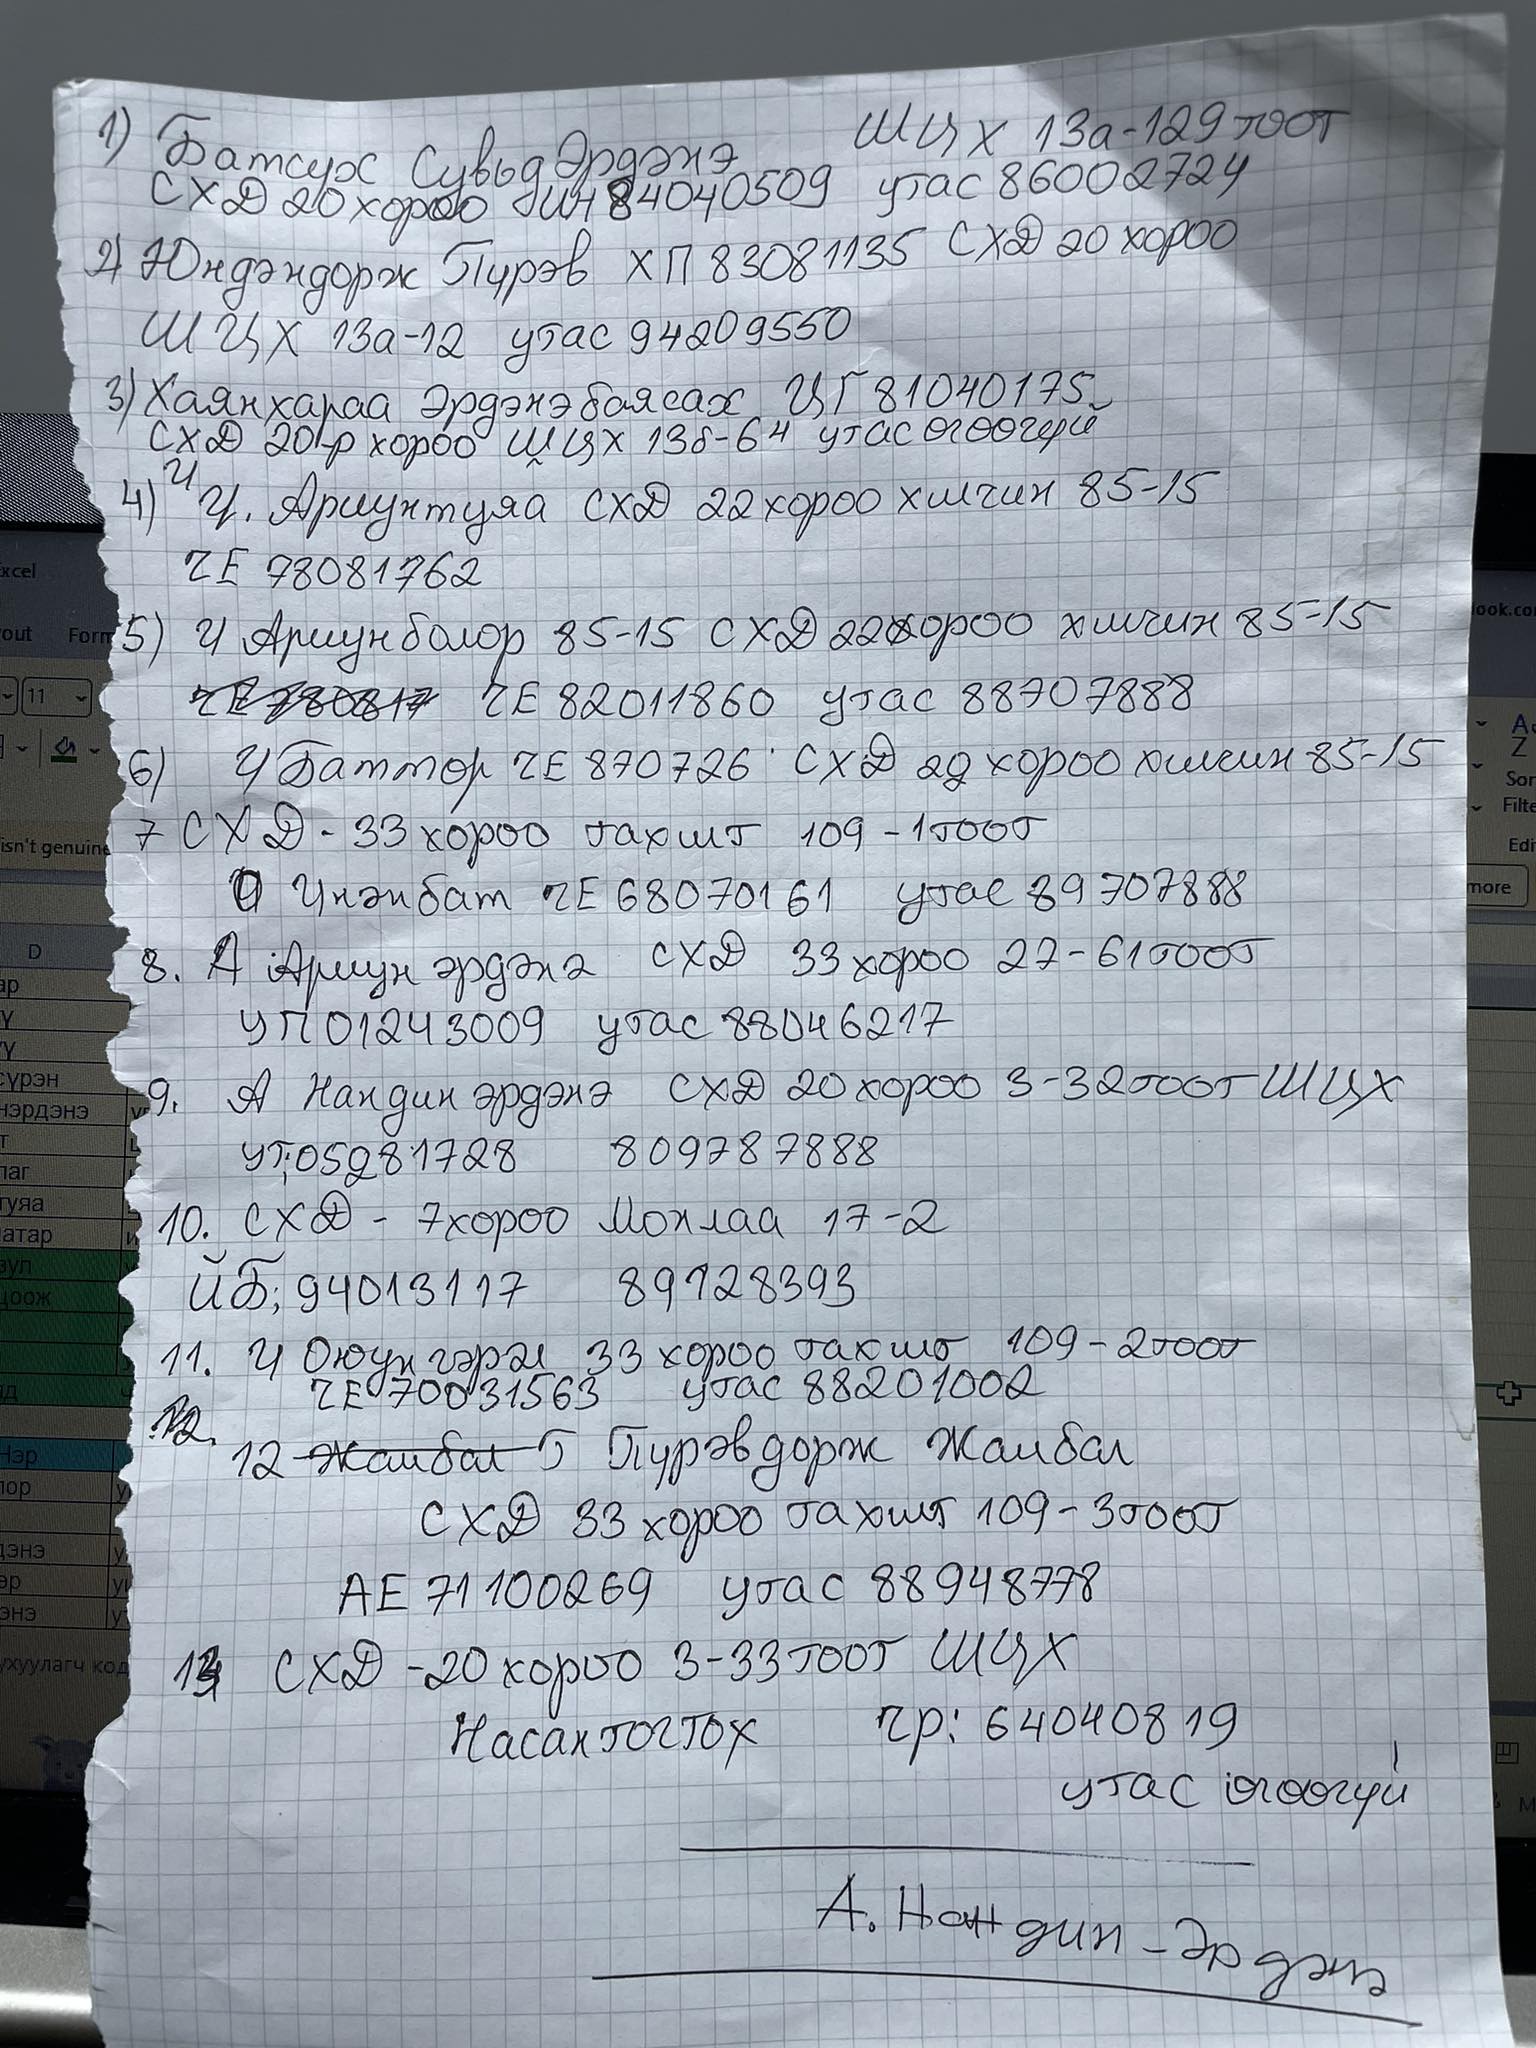 1) Батсүх Сувьд Эрдэнэ ШЦХ 13а-129 тоот
СХД 20 хороо 84040509 утас 86002724
2) Юндэндорж Пүрэв ХП 83081135 СХД 20 хороо
ШЦХ 13а-12 утас 94209550
3) Хаянхараа Эрдэнэбаясах ЦГ 81040175
СХД 20-р хороо ШЦХ 13б-64 утас өгөөгүй
4) Ц. Ариунтуяа СХД 22 хороо хилчин 85-15
ЧЕ 78081762
5) Ц Ариунболор 85-15 СХД 22 хороо хилчин 85-15
ЧЕ 82011860 утас 88707888
6) Ц Баттөр ЧЕ 870726 СХД 22 хороо хилчин 85-15
7 СХД - 33 хороо тахилт 109-1 тоот
Ц Үнэнбат ЧЕ 68070161 утас 89707888
8. А Ариун эрдэнэ СХД 33 хороо 27-61 тоот
УП 01243009 утас 88046217
9. А Нандин эрдэнэ СХД 20 хороо 3-32 тоот ШЦХ
УТ; 05281728 809787888
10. СХД - 7 хороо Монлаа 17-2
ЙБ; 94013117 89128393
11. Ц Оюун гэрэл 33 хороо тахилт 109-2 тоот
ЧЕ 70031563 утас 88201002
12.
12 Жамбал Г Пүрэвдорж Жамбал
СХД 33 хороо тахилт 109-3 тоот
АЕ 71100269 утас 88948778
13 СХД -20 хороо 3-33 тоот ШЦХ
Насантогтох ЧР: 64040819
утас өгөөгүй
А. Нандин-Эрдэнэ
Excel
11
isn't genuine
D
Нэр